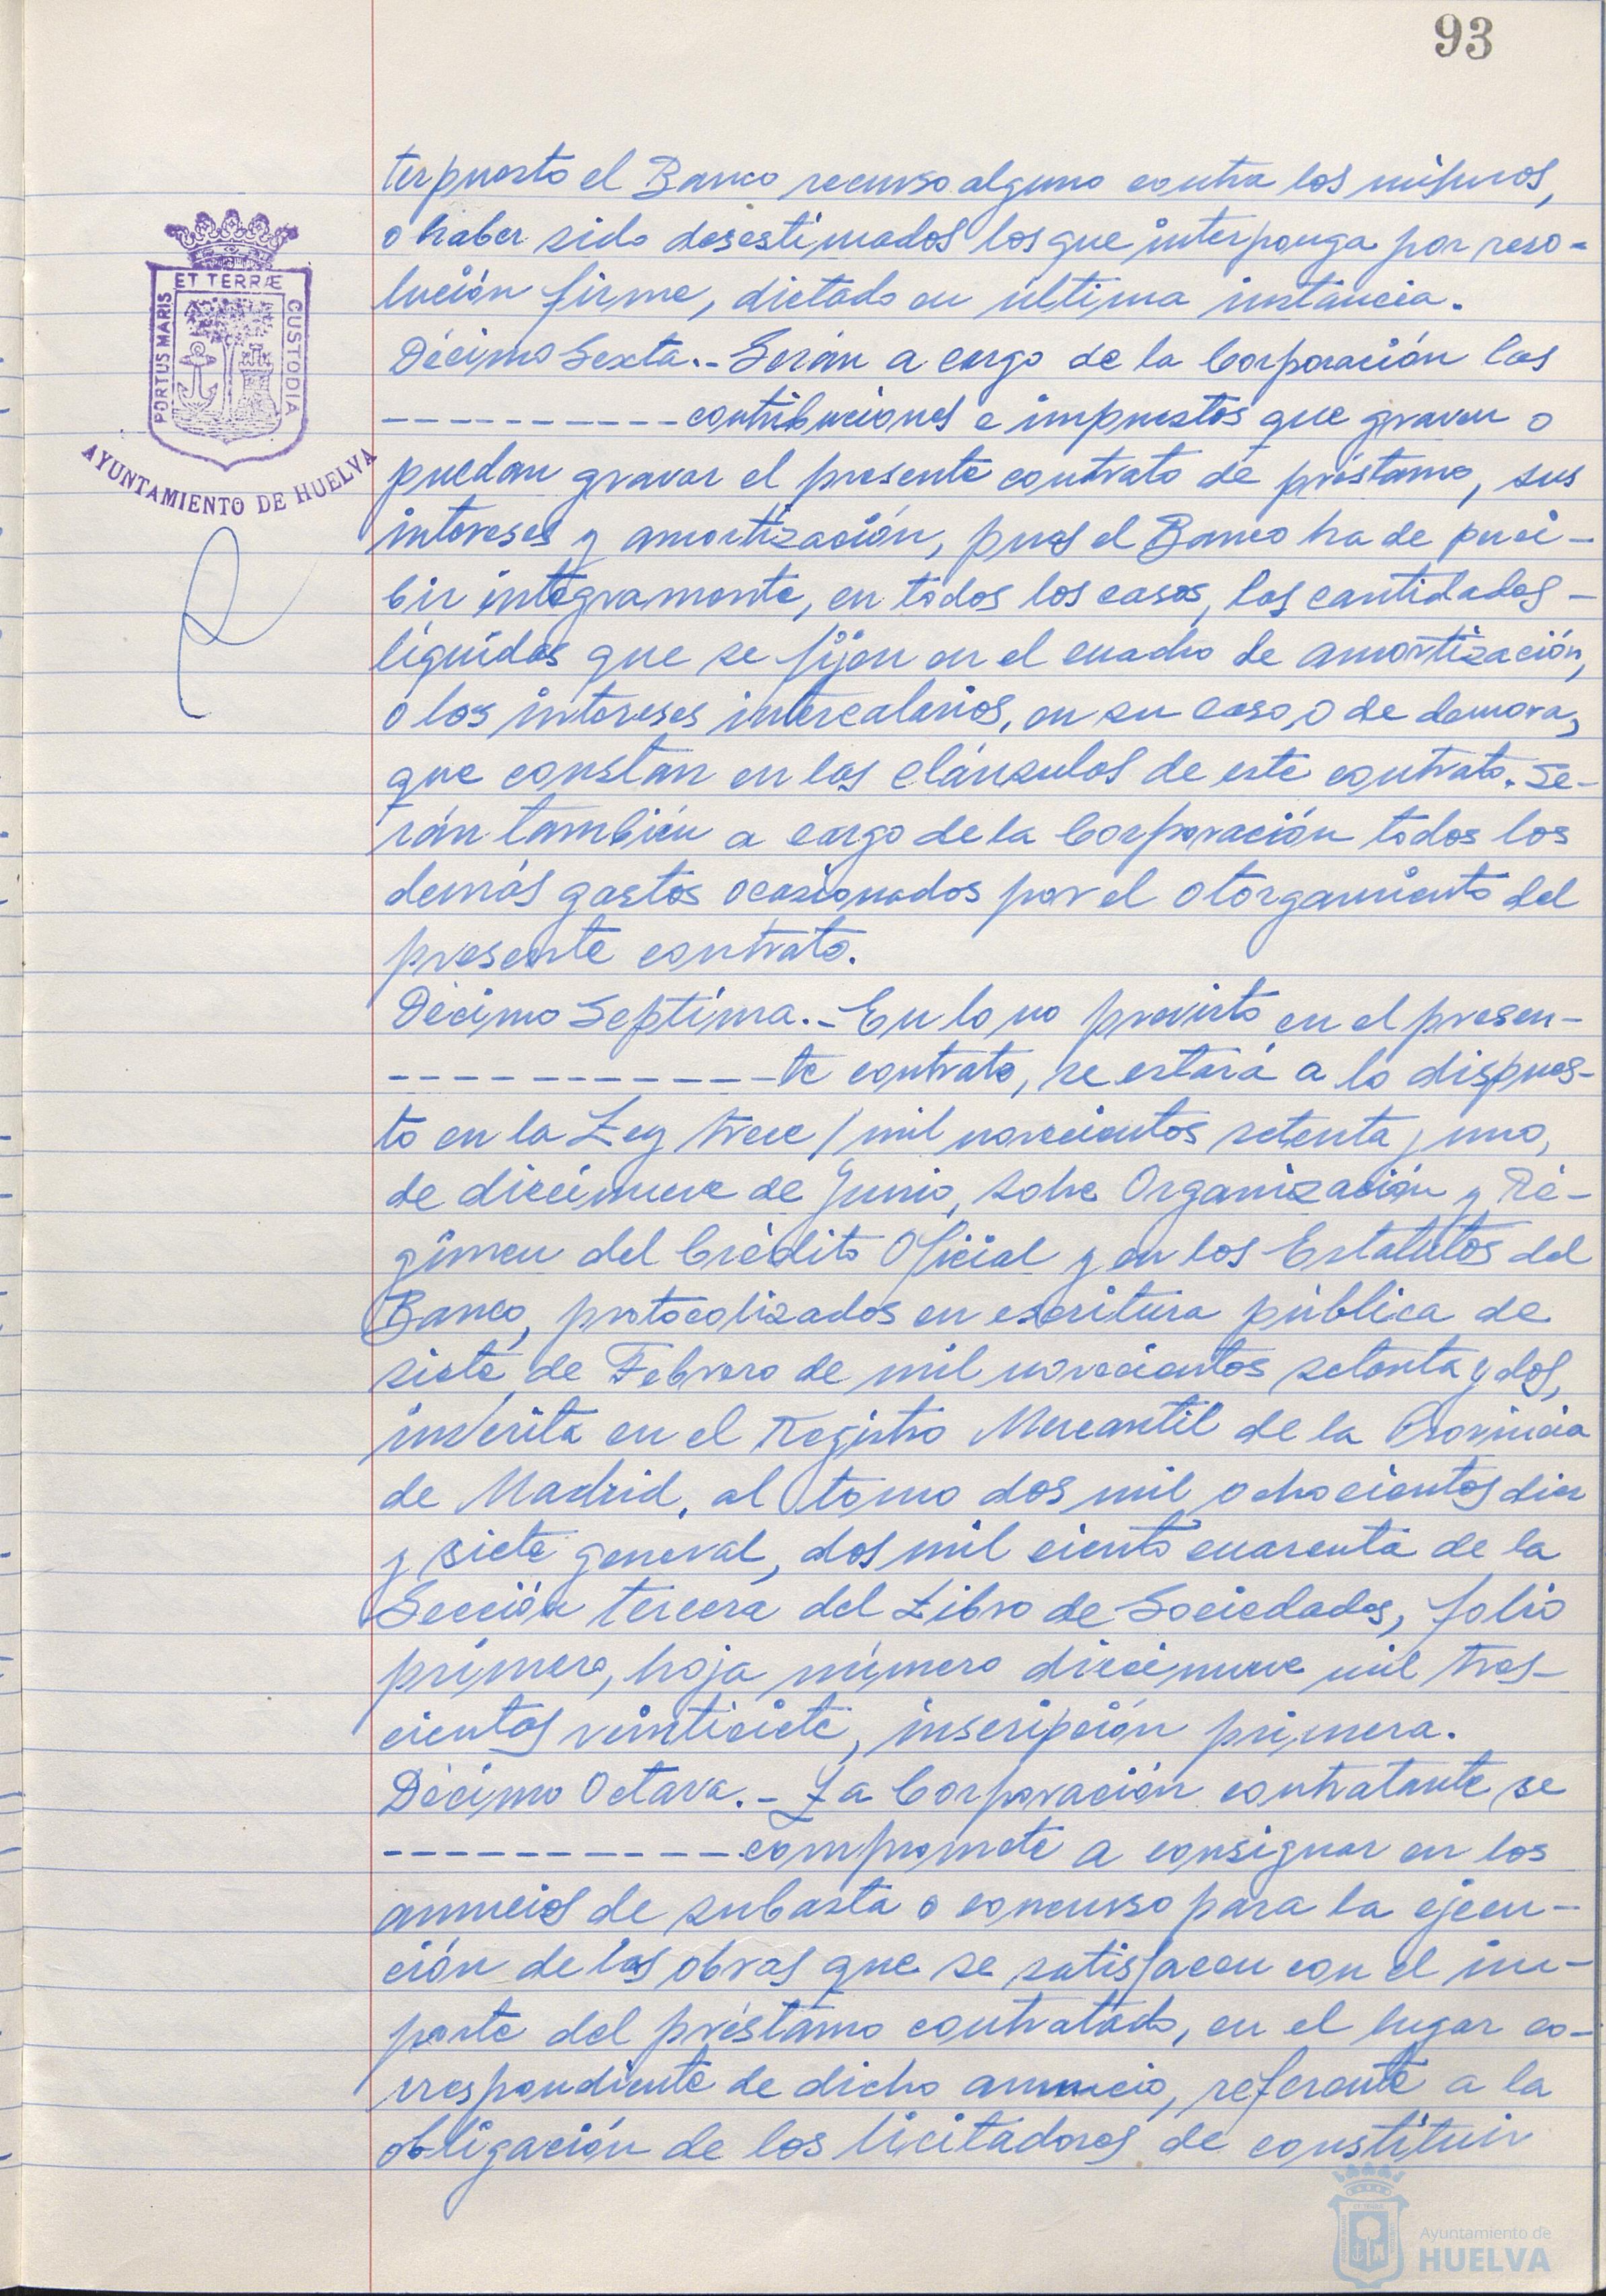 93
terpuesto el Banco recurso alguno contra los mismos,
o haber sido desestimados los que interponga por reso-
lución firme, dictado en última instancia.
Décimo Sexta.- Serán a cargo de la Corporación las
----------contribuciones e impuestos que graven o
puedan gravar el presente contrato de préstamo, sus
intereses y amortización, pues el Banco ha de perci-
bir íntegramente, en todos los casos, las cantidades -
líquidas que se fijen en el cuadro de amortización,
o los intereses intercalarios, en su caso, o de demora,
que constan en las cláusulas de este contrato. Se-
rán también a cargo de la Corporación todos los
demás gastos ocasionados por el otorgamiento del
presente contrato.
Décimo Septima.- En lo no previsto en el presen-
------------te contrato, se estará a lo dispues-
to en la Ley trece/mil novecientos setenta y uno,
de diecinueve de Junio, sobre Organización y Ré-
gimen del Crédito Oficial y en los Estatutos del
Banco, protocolizados en escritura pública de
siete de Febrero de mil novecientos setenta y dos,
inscrita en el Registro Mercantil de la Provincia
de Madrid, al tomo dos mil ochocientos diez
y siete general, dos mil ciento cuarenta de la
Sección tercera del Libro de Sociedades, folio
primero, hoja número diecinueve mil tres-
cientos veintisiete, inscripción primera.
Décimo Octava.- La Corporación contratante se
------------compromete a consignar en los
anuncios de subasta o concurso para la ejecu-
ción de las obras que se satisfacen con el im-
porte del préstamo contratado, en el lugar co-
rrespondiente de dicho anuncio, referente a la
obligación de los licitadores de constituir
PORTUS MARIS ET TERRÆ CUSTODIA
AYUNTAMIENTO DE HUELVA
Ayuntamiento de
HUELVA